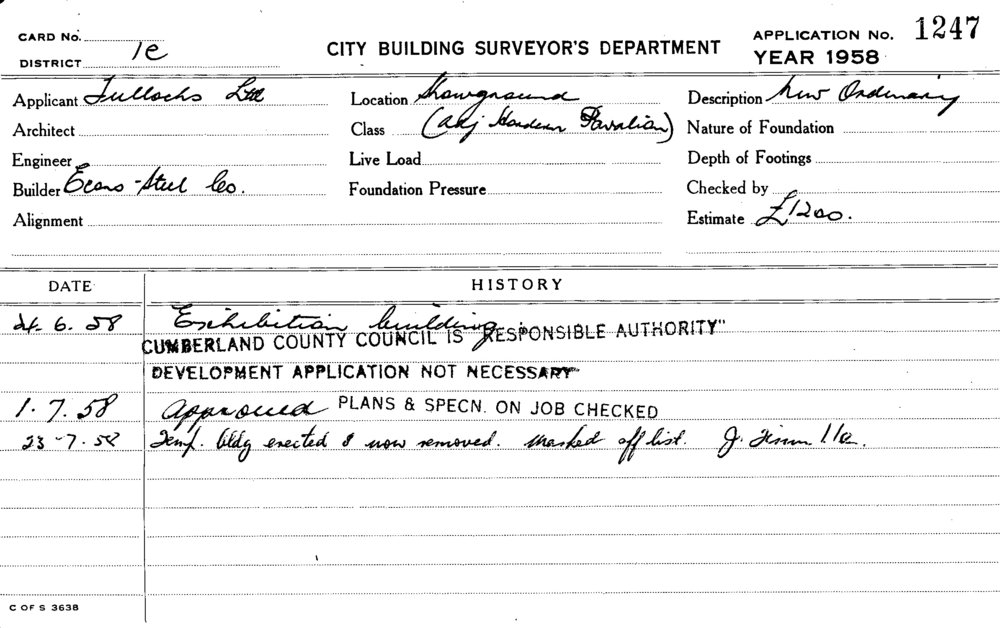 CARD No.
CITY BUILDING SURVEYOR'S DEPARTMENT
APPLICATION No. 1247
DISTRICT 1e
YEAR 1958
Applicant Tullochs Ltd
Location Showground
Description New Ordinary
Architect
Class (adj Hordern Pavalian)
Nature of Foundation
Engineer
Live Load
Depth of Footings
Builder Econo-Steel Co.
Foundation Pressure
Checked by
Alignment
Estimate £1200.
DATE HISTORY
24. 6. 58 Exhibition building
CUMBERLAND COUNTY COUNCIL IS "RESPONSIBLE AUTHORITY"
DEVELOPMENT APPLICATION NOT NECESSARY
1. 7. 58 Approved PLANS & SPECN. ON JOB CHECKED
23-7.58 Temp. bldg erected & now removed. Marked off list. J.
C OF S 3638